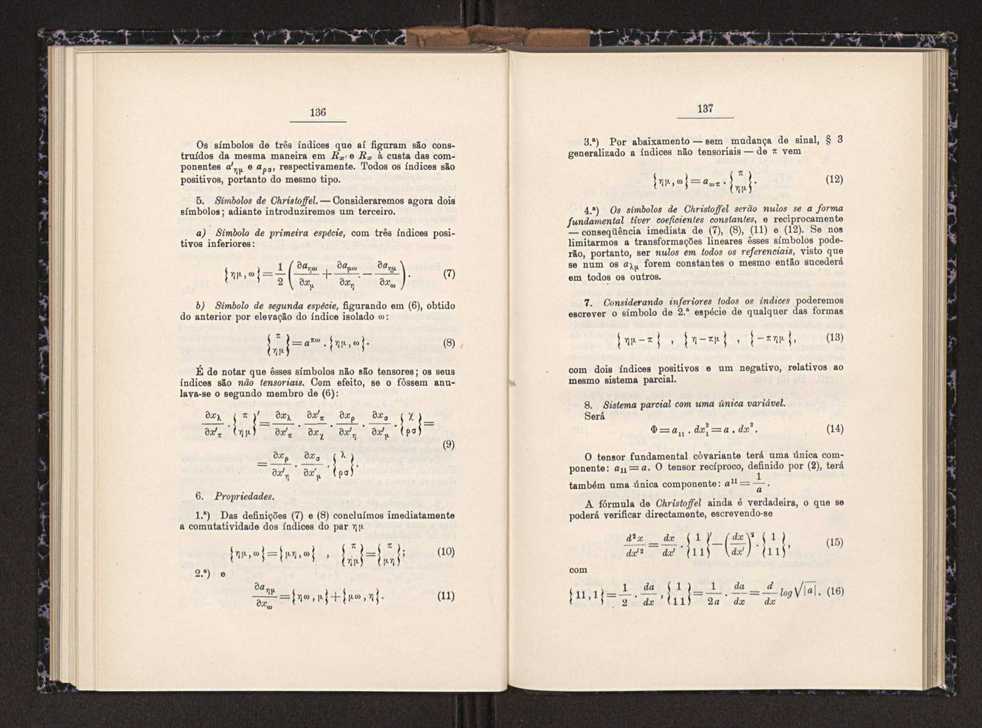 136
Os símbolos de três índices que aí figuram são cons-
truídos da mesma maneira em Rx' e Rx à custa das com-
ponentes a'ημ e aρσ, respectivamente. Todos os índices são
positivos, portanto do mesmo tipo.
5. Símbolos de Christoffel. — Consideraremos agora dois
símbolos; adiante introduziremos um terceiro.
a) Símbolo de primeira espécie, com três índices posi-
tivos inferiores:
{ημ, ω} = 1/2 (∂aηω/∂xμ + ∂aμω/∂xη − ∂aημ/∂xω). (7)
b) Símbolo de segunda espécie, figurando em (6), obtido
do anterior por elevação do índice isolado ω:
{π ημ} = a^πω . {ημ, ω}. (8)
É de notar que êsses símbolos não são tensores; os seus
índices são não tensoriais. Com efeito, se o fôssem anu-
lava-se o segundo membro de (6):
∂xλ/∂x'π . {π ημ}' = ∂xλ/∂x'π . ∂x'π/∂xχ . ∂xρ/∂x'η . ∂xσ/∂x'μ . {χ ρσ} =
(9)
= ∂xρ/∂x'η . ∂xσ/∂x'μ . {λ ρσ}.
6. Propriedades.
1.ª) Das definições (7) e (8) concluímos imediatamente
a comutatividade dos índices do par ημ
{ημ, ω} = {μη, ω} , {π ημ} = {π μη}; (10)
2.ª) e
∂aημ/∂xω = {ηω, μ} + {μω, η}. (11)
137
3.ª) Por abaixamento — sem mudança de sinal, § 3
generalizado a índices não tensoriais — de π vem
{ημ, ω} = aωπ . {π ημ}. (12)
4.ª) Os símbolos de Christoffel serão nulos se a forma
fundamental tiver coeficientes constantes, e reciprocamente
— conseqüência imediata de (7), (8), (11) e (12). Se nos
limitarmos a transformações lineares êsses símbolos pode-
rão, portanto, ser nulos em todos os referenciais, visto que
se num os aλμ forem constantes o mesmo então sucederá
em todos os outros.
7. Considerando inferiores todos os índices poderemos
escrever o símbolo de 2.ª espécie de qualquer das formas
{ημ − π} , {η − πμ} , {− πημ}, (13)
com dois índices positivos e um negativo, relativos ao
mesmo sistema parcial.
8. Sistema parcial com uma única variável.
Será
Φ = a₁₁ . dx₁² = a . dx². (14)
O tensor fundamental còvariante terá uma única com-
ponente: a₁₁ = a. O tensor recíproco, definido por (2), terá
também uma única componente: a¹¹ = 1/a.
A fórmula de Christoffel ainda é verdadeira, o que se
poderá verificar directamente, escrevendo-se
d²x/dx'² = dx/dx' . {1 11}' − (dx/dx')² . {1 11}, (15)
com
{11,1} = 1/2 . da/dx , {1 11} = 1/2a . da/dx = d/dx log √|a|. (16)